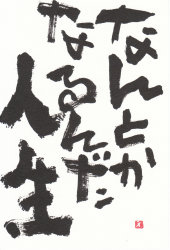 なんとか
なるんだ
人生